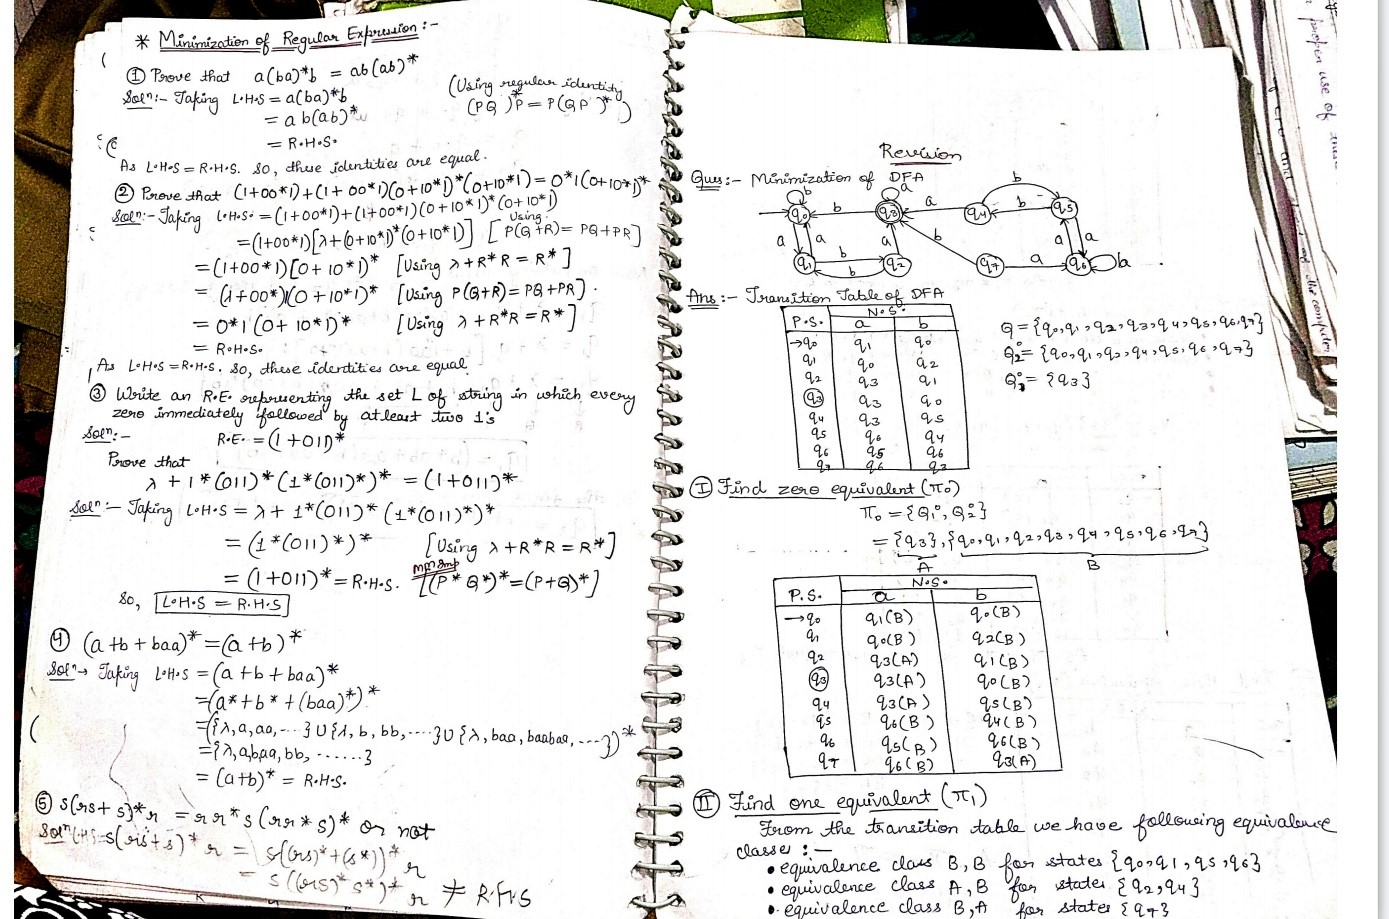 * Minimization of Regular Expression :-
① Prove that a(ba)*b = ab(ab)*
Solⁿ:- Taking L.H.S = a(ba)*b (Using regular identity
= ab(ab)* (PQ)*P = P(QP)*)
= R.H.S.
As L.H.S = R.H.S. So, these identities are equal.
② Prove that (1+00*1)+(1+00*1)(0+10*1)*(0+10*1) = 0*1(0+10*1)*
Solⁿ:- Taking L.H.S. = (1+00*1)+(1+00*1)(0+10*1)*(0+10*1)
= (1+00*1)[λ+(0+10*1)*(0+10*1)] [Using: P(Q+R) = PQ+PR]
= (1+00*1)[0+10*1)* [Using λ+R*R = R*]
= (λ+00*)1(0+10*1)* [Using P(Q+R)=PQ+PR].
= 0*1(0+10*1)* [Using λ+R*R=R*]
= R.H.S.
As L.H.S = R.H.S. So, these identities are equal.
③ Write an R.E. representing the set L of string in which every
zero immediately followed by atleast two 1's
Solⁿ:- R.E. = (1+011)*
Prove that
λ + 1*(011)*(1*(011)*)* = (1+011)*
Solⁿ:- Taking L.H.S = λ + 1*(011)*(1*(011)*)*
= (1*(011)*)* [Using λ+R*R = R*]
= (1+011)* = R.H.S. [(P*Q*)* = (P+Q)*]
So, L.H.S = R.H.S
④ (a+b+baa)* = (a+b)*
Solⁿ→ Taking L.H.S = (a+b+baa)*
= (a*+b*+(baa)*)*
= ({λ,a,aa,...}U{λ,b,bb,....}U{λ,baa,baabaa,....})*
= {λ,abaa,bb,......}
= (a+b)* = R.H.S.
⑤ s(rs+s)*r = rr*s(rr*s)* or not
Solⁿ LHS = s(rs+s)*r = s((rs)*+(s*))*r
= s((rs)*s*)*r ≠ R.H.S
Revision
Ques:- Minimization of DFA
b a b
q0 b q3 a q4 b q5
a a a b a a
q1 b q2 q7 a q6 b
b
Ans:- Transition Table of DFA
P.S. N.S.
a b
→q0 q1 q0
q1 q0 q2
q2 q3 q1
q3 q3 q0
q4 q3 q5
q5 q6 q4
q6 q5 q6
q7 q6 q3
Q = {q0,q1,q2,q3,q4,q5,q6,q7}
Q2° = {q0,q1,q2,q4,q5,q6,q7}
Q1° = {q3}
Ⓘ Find zero equivalent (π0)
π0 = {Q1°, Q2°}
= {q3}, {q0,q1,q2,q3,q4,q5,q6,q7}
A B
P.S. N.S.
a b
→q0 q1(B) q0(B)
q1 q0(B) q2(B)
q2 q3(A) q1(B)
q3 q3(A) q0(B)
q4 q3(A) q5(B)
q5 q6(B) q4(B)
q6 q5(B) q6(B)
q7 q6(B) q3(A)
Ⓘ Find one equivalent (π1)
From the transition table we have following equivalence
classes :-
• equivalence class B,B for states {q0,q1,q5,q6}
• equivalence class A,B for states {q2,q4}
• equivalence class B,A for states {q7}